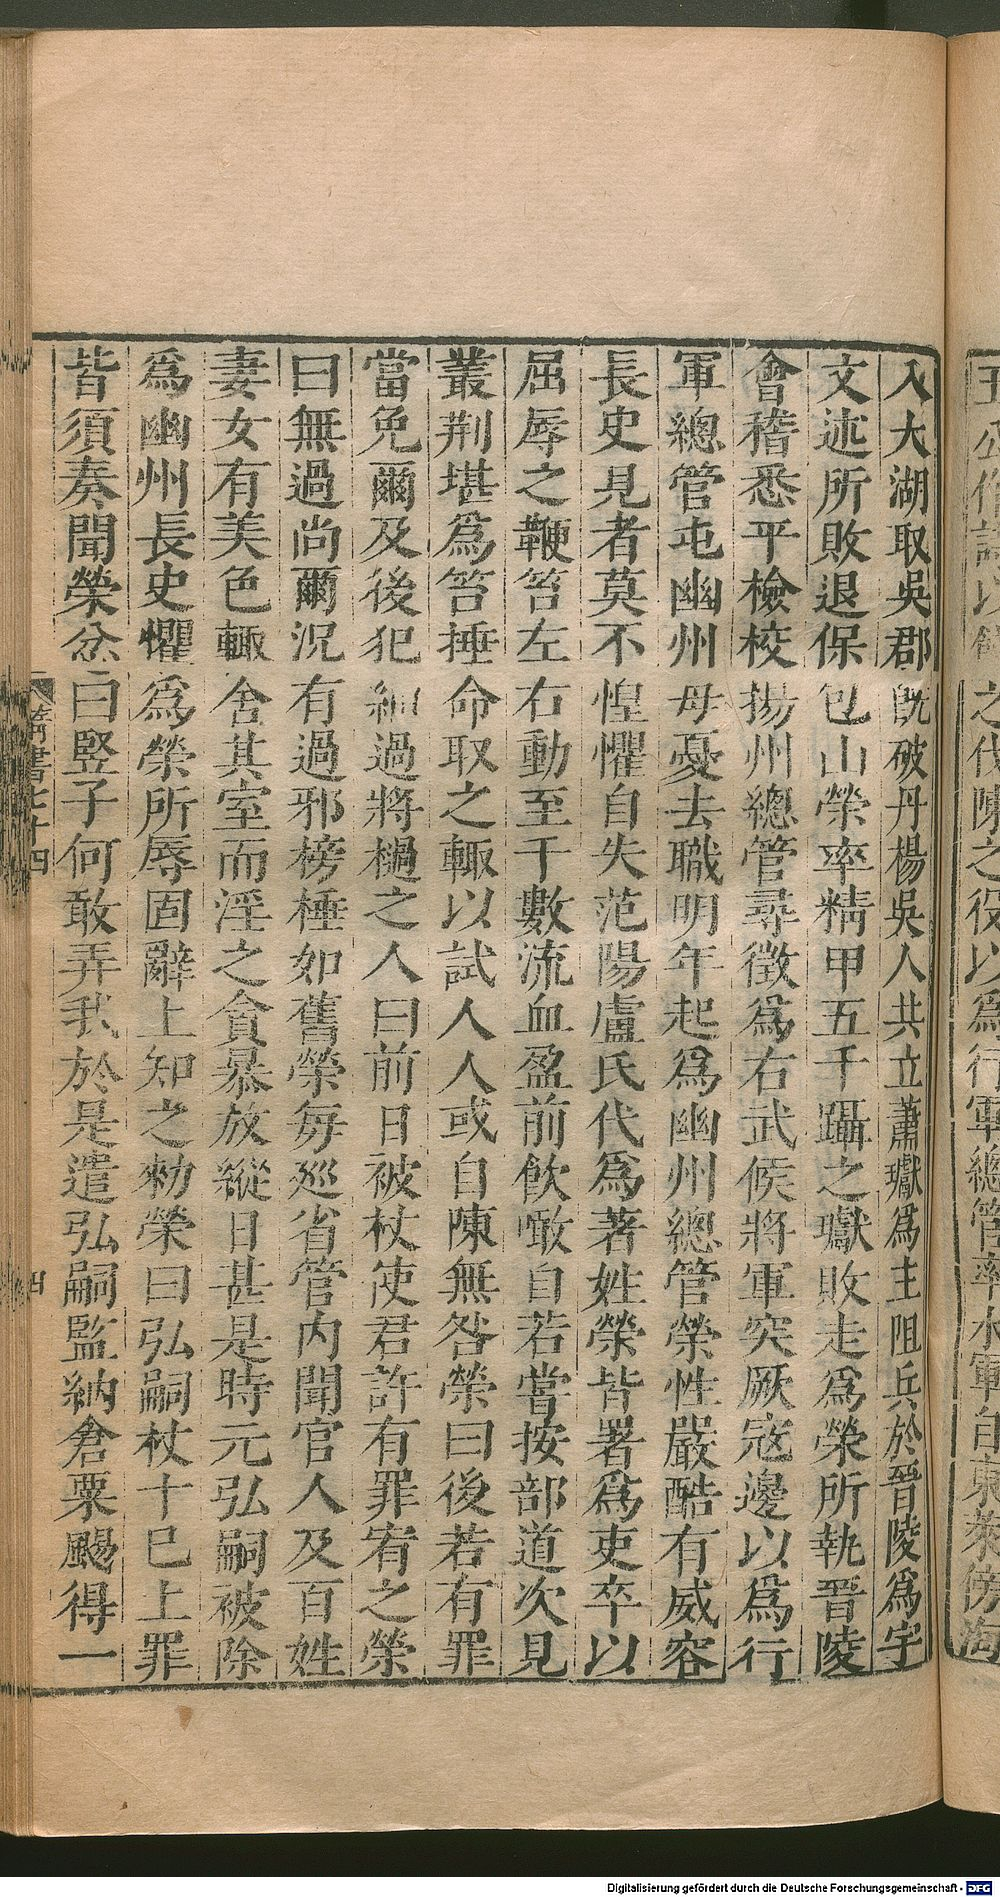 入太湖取吳郡既破丹楊吳人共立蕭瓛爲主阻兵於晉陵爲宇
文述所敗退保包山榮率精甲五千躡之瓛敗走爲榮所執晉陵
會稽悉平檢校揚州總管尋徵爲右武候將軍突厥寇邊以爲行
軍總管屯幽州母憂去職明年起爲幽州總管榮性嚴酷有威容
長史見者莫不惶懼自失范陽盧氏代爲著姓榮皆署爲吏卒以
屈辱之鞭笞左右動至千數流血盈前飲噉自若嘗按部道次見
叢荆堪爲笞捶命取之輙以試人人或自陳無咎榮曰後若有罪
當免爾及後犯細過將檛之人曰前日被杖使君許有罪宥之榮
曰無過尚爾況有過邪榜棰如舊榮每巡省管内聞官人及百姓
妻女有美色輙舍其室而淫之貪暴放縱日甚是時元弘嗣被除
爲幽州長史懼爲榮所辱固辭上知之勑榮曰弘嗣杖十巳上罪
皆須奏聞榮忿曰竪子何敢弄我於是遣弘嗣監納倉粟颺得一
隋書七十四
四
之伐陳之役以爲行軍總管率水軍自東萊傍海
Digitalisierung gefördert durch die Deutsche Forschungsgemeinschaft - DFG